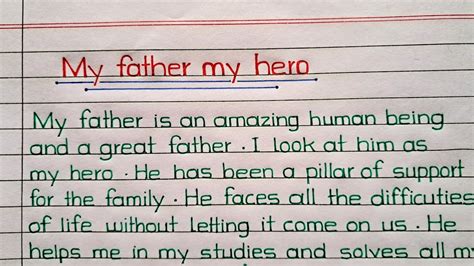 My father my hero
My father is an amazing human being
and a great father . I look at him as
my hero . He has been a pillar of support
for the family . He faces all the difficuties
of life without letting it come on us . He
helps me in my studies and solves all my